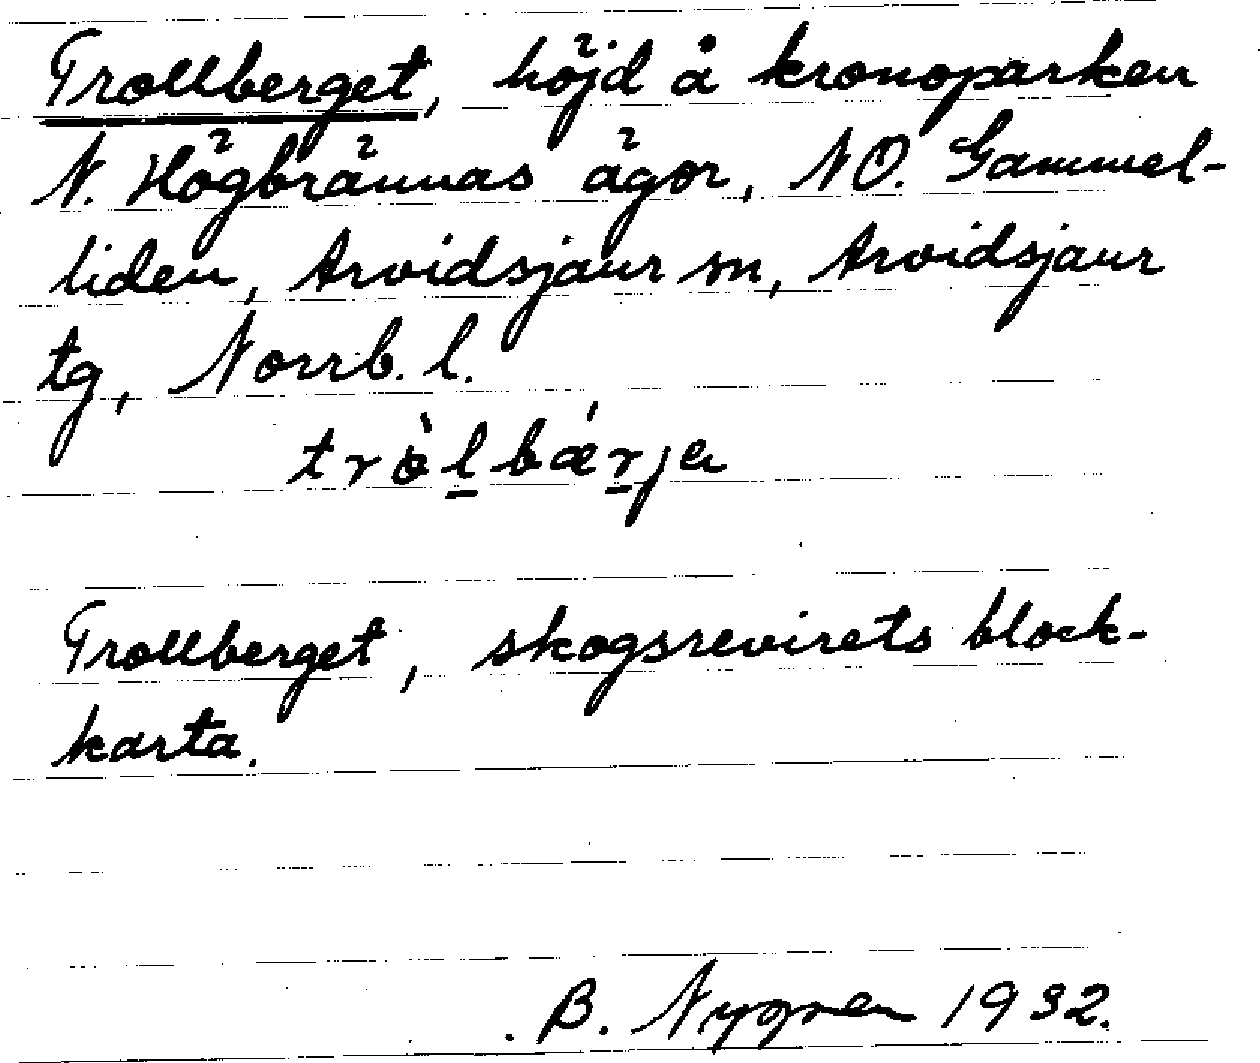 Trollberget, höjd å kronoparken
N. Högbrännas ägor, NO. Gammel-
liden, Arvidsjaur sn, Arvidsjaur
tg, Norrb. l.
tròlbǽrja
Trollberget, skogsrevirets block-
karta.
B. Nygren 1932.